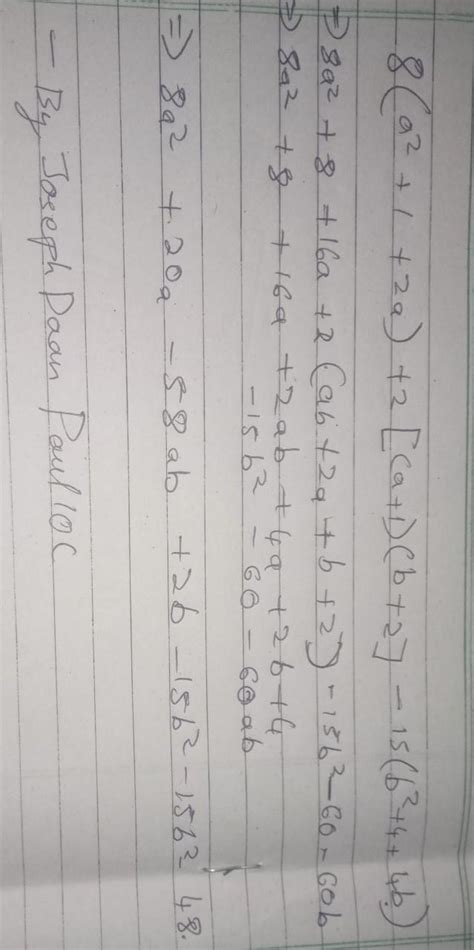 8(a² + 1 + 2a) + 2[(a+1)(b+2] - 15(b²+4+4b)
⇒ 8a² + 8 + 16a + 2(ab + 2a + b + 2) - 15b² - 60 - 60b
⇒ 8a² + 8 + 16a + 2ab + 4a + 2b + 4
- 15b² - 60 - 60ab
⇒ 8a² + 20a - 58ab + 2b - 15b² - 15b² - 48.
- By Joseph Daan Paul 10C